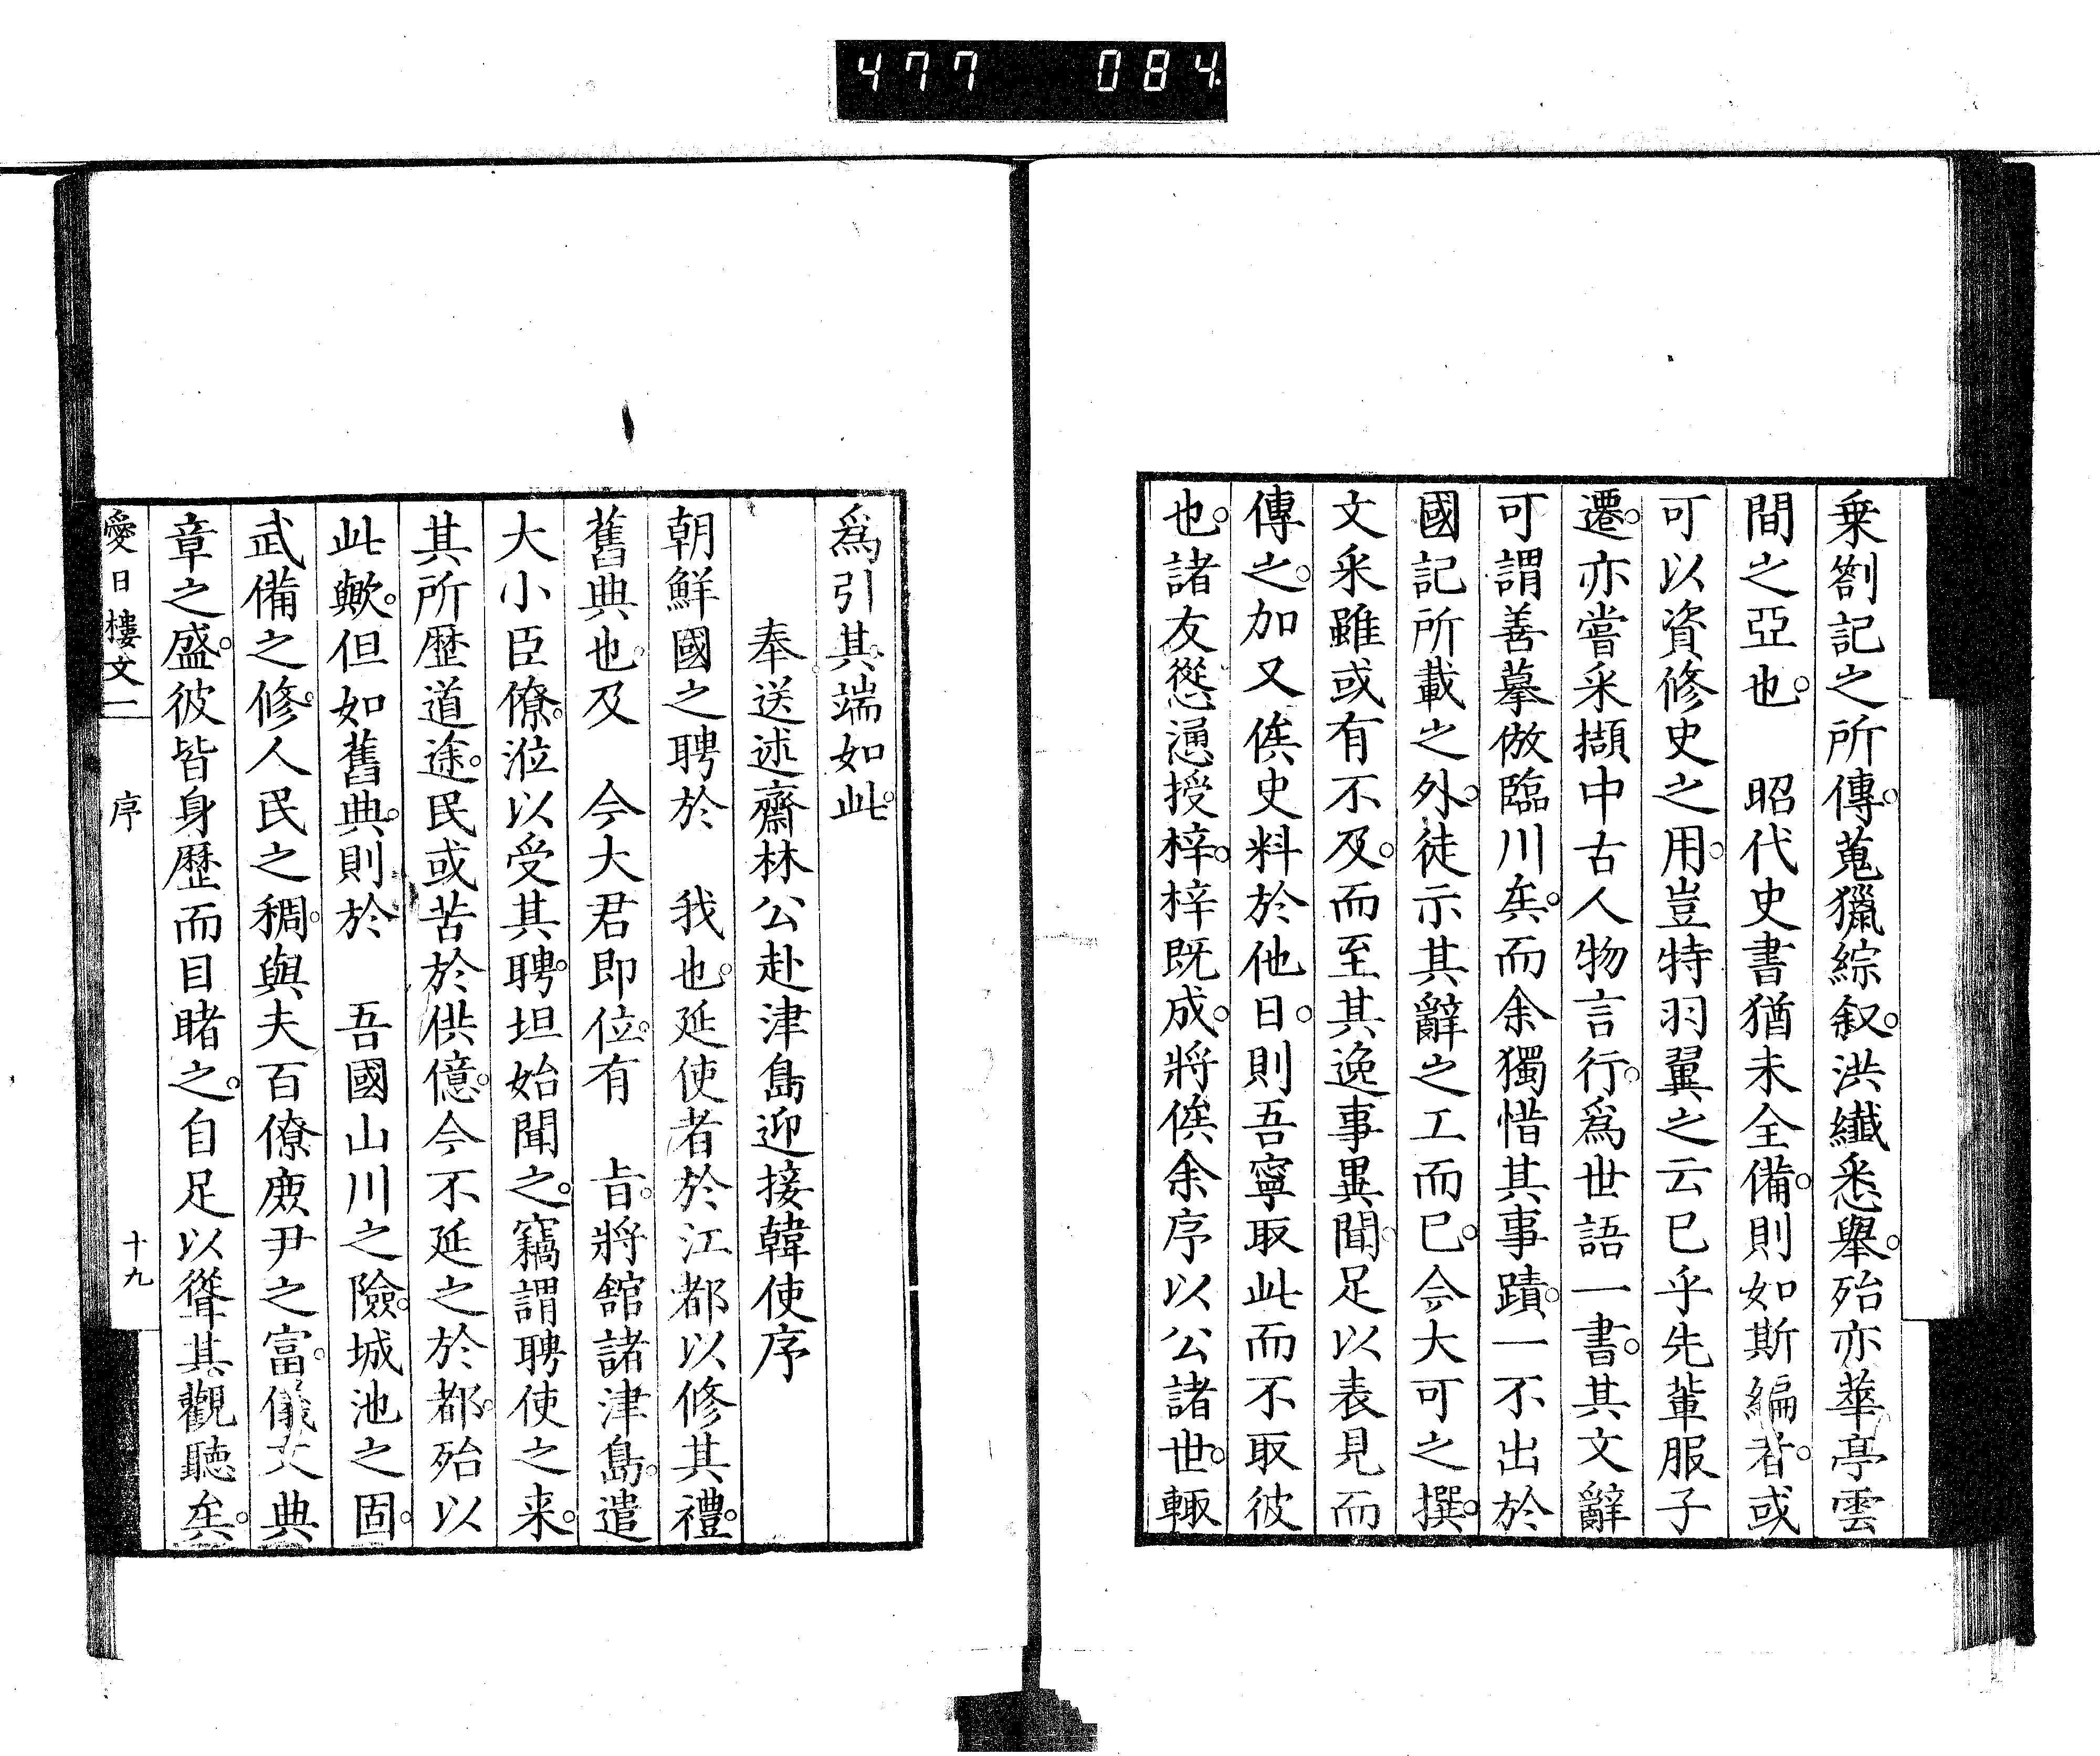 477 084
乗劄記之所傳。蒐獵綜叙。洪纖悉舉。殆亦華亭雲
間之亞也。　昭代史書猶未全備。則如斯編者。或
可以資修史之用。豈特羽翼之云已乎先輩服子
遷。亦嘗采擷中古人物言行。爲世語一書。其文辭
可謂善摹倣臨川矣。而余獨惜其事蹟。一不出於
國記所載之外。徒示其辭之工而已。今大可之撰。
文采雖或有不及。而至其逸事異聞。足以表見而
傳之。加又俟史料於他日。則吾寧取此而不取彼
也。諸友慫慂授梓。梓既成。將俟余序以公諸世。輙
爲引其端如此。
奉送述齋林公赴津島迎接韓使序
朝鮮國之聘於　我也。延使者於江都以修其禮。
舊典也。及　今大君即位。有　旨。將舘諸津島。遣
大小臣僚。涖以受其聘。坦始聞之。竊謂聘使之来。
其所歴道途。民或苦於供億。今不延之於都。殆以
此歟。但如舊典。則於　吾國山川之險。城池之固。
武備之修。人民之稠。與夫百僚庶尹之富。儀文典
章之盛。彼皆身歴而目睹之。自足以聳其觀聽矣。
愛日樓文二　序　十九